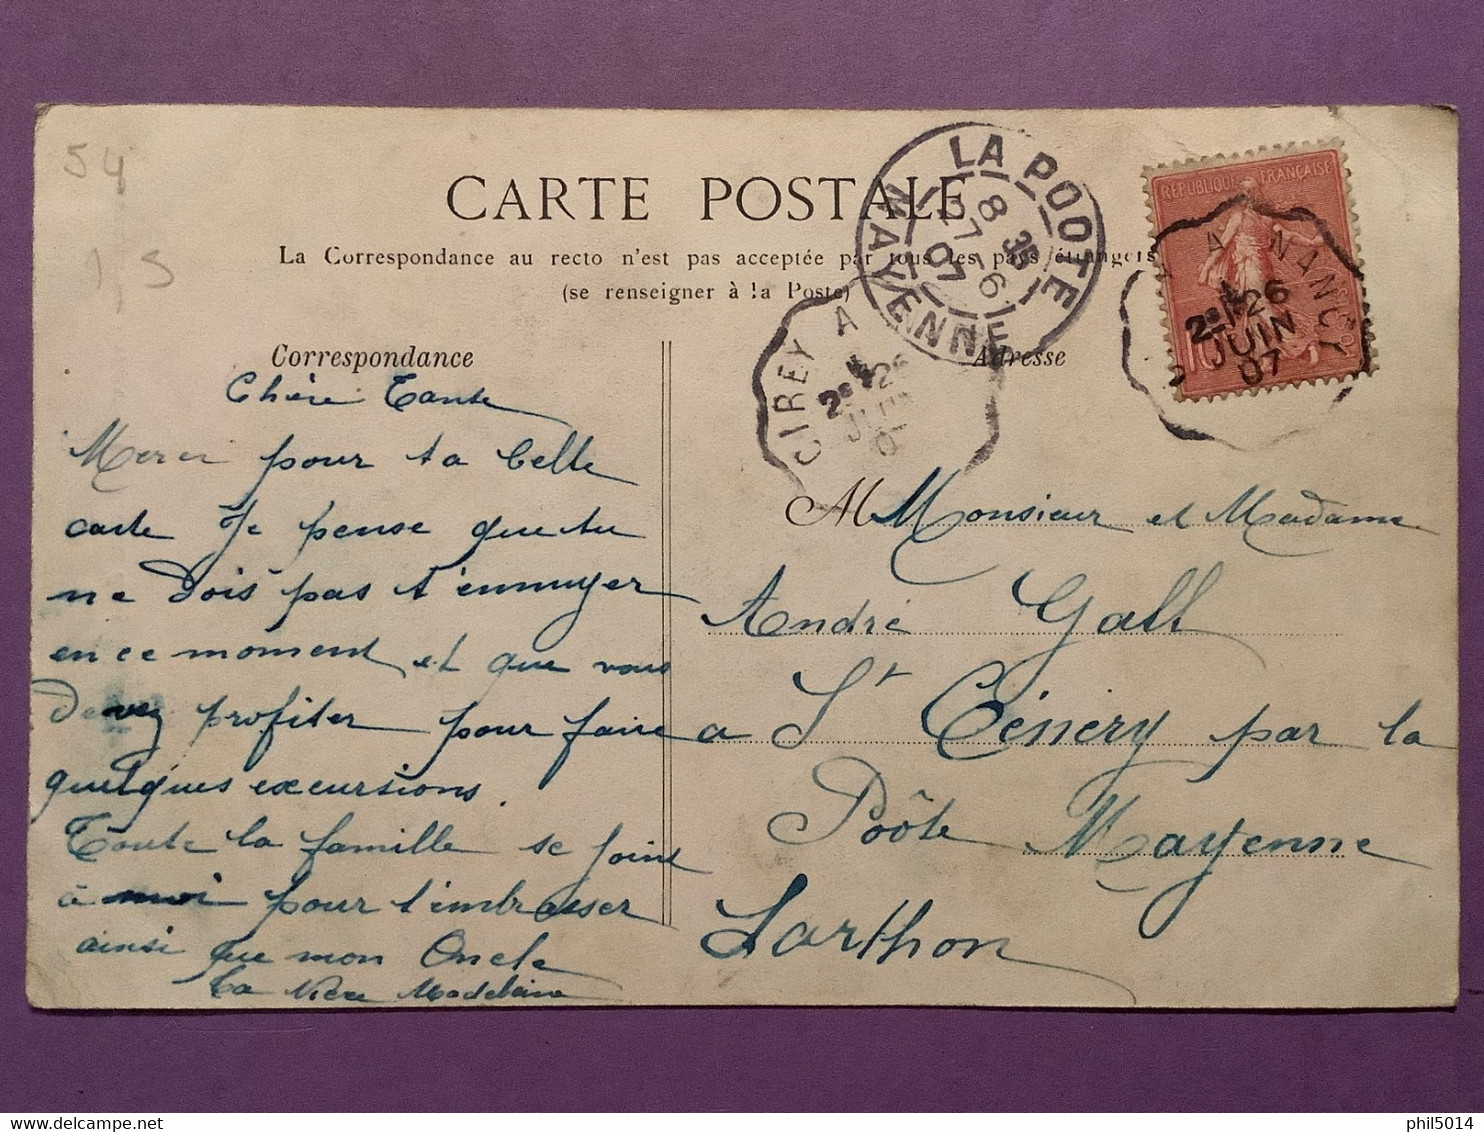 54
1,5
CARTE POSTALE
La Correspondance au recto n'est pas acceptée par tous les pays étrangers
(se renseigner à la Poste)
Correspondance
Adresse
Chère Tante
Merci pour ta belle
carte Je pense que tu
ne dois pas t'ennuyer
en ce moment et que vous
devez profiter pour faire
quelques excursions.
Toute la famille se joint
à moi pour t'embrasser
ainsi que mon Oncle
Ta Nièce Madeleine
LA POOTE
MAYENNE
8 35
27-6
07
CIREY A
2e 26
JUIN
07
REPUBLIQUE FRANÇAISE
A NANCY
2e 26
JUIN
07
10
M Monsieur et Madame
André Gall
a St Cénery par la
Poôte Mayenne
Sarthon
phil5014